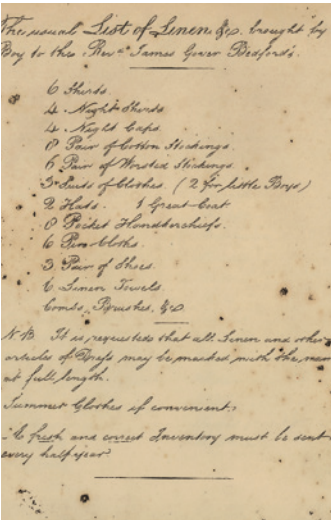 The usual List of Linen &c. brought by
Boy to the Revd. James Gover Bedford's.
6 Shirts.
4 Night Shirts
4 Night Caps.
6 Pair of Cotton Stockings.
6 Pair of Worsted Stockings.
3 Suits of Clothes. (2 for little Boys)
2 Hats. 1 Great-Coat
8 Pocket Handkerchiefs.
6 Pin-Cloths.
3 Pair of Shoes.
6 Linen Towels.
Combs, Brushes, &c
N.B. It is requested that all Linen and other
articles of Dress may be marked with the name
at full length.
Summer Clothes if convenient.
A fresh and correct Inventory must be sent
every half year